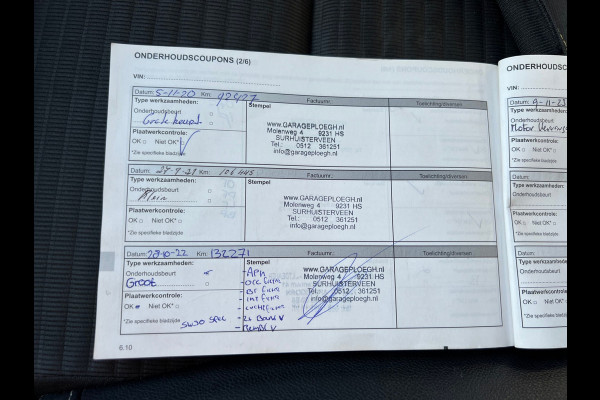 ONDERHOUDSCOUPONS (2/6)
VIN:
Datum: 5-11-20 Km: 92427 Factuurnr.: Toelichting/diversen
Type werkzaamheden: Stempel
Onderhoudsbeurt
Grote beurt
Plaatwerkcontrole:
OK Niet OK*
*Zie specifieke bladzijde
www.GARAGEPLOEGH.nl
Molenweg 4 9231 HS
SURHUISTERVEEN
Tel.: 0512 361251
info@garageploegh.nl
Datum: 27-9-21 Km: 106445 Factuurnr.: Toelichting/diversen
Type werkzaamheden: Stempel
Onderhoudsbeurt
Klein
Plaatwerkcontrole:
OK Niet OK*
*Zie specifieke bladzijde
www.GARAGEPLOEGH.nl
Molenweg 4 9231 HS
SURHUISTERVEEN
Tel.: 0512 361251
info@garageploegh.nl
Datum: 28-10-22 Km: 132271 Factuurnr.: Toelichting/diversen
Type werkzaamheden: Stempel
Onderhoudsbeurt
Groot
Plaatwerkcontrole:
OK Niet OK*
*Zie specifieke bladzijde
5W30
- APK
www.GARAGEPLOEGH.nl
Molenweg 4 9231 HS
SURHUISTERVEEN
Tel.: 0512 361251
info@garageploegh.nl
6.10
ONDERHOUDSC
VIN:
Datum:
Type werkzaamheden:
Onderhoudsbeurt
Motor
Plaatwerkcontrole:
OK Niet OK*
*Zie specifieke bladzijde
Datum:
Type werkzaamheden:
Onderhoudsbeurt
Plaatwerkcontrole:
OK Niet OK*
*Zie specifieke bladzijde
Datum:
Type werkzaamheden:
Onderhoudsbeurt
Plaatwerkcontrole:
OK Niet OK*
*Zie specifieke bladzijde